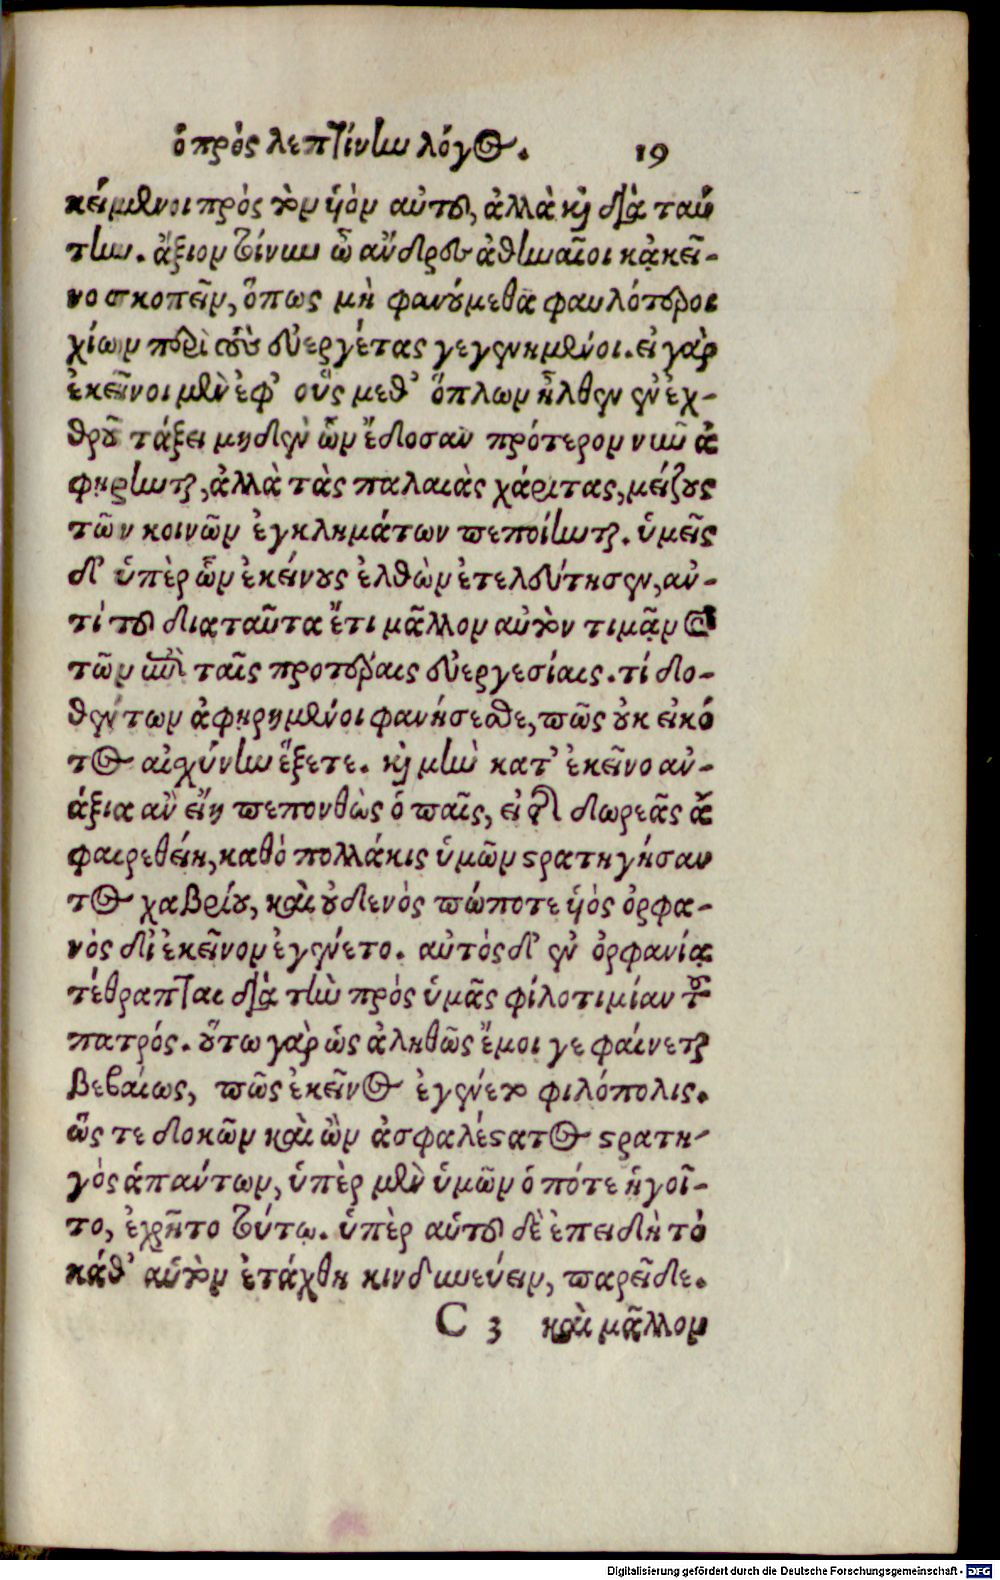 ὁ πρὸς λεπτίνην λόγος. 19
κείμενοι πρὸς τὸν ὑὸν αὐτοῦ, ἀλλὰ καὶ διὰ ταύ
την. ἄξιον τοίνυν ὦ ἄνδρες ἀθηναῖοι κᾀκεῖ-
νο σκοπεῖν, ὅπως μὴ φανούμεθα φαυλότεροι
χίων περὶ τοὺς εὐεργέτας γεγενημένοι. εἰ γὰρ
ἐκεῖνοι μὲν ἐφ' οὓς μεθ' ὅπλων ἦλθεν ἐν ἐχ-
θροῦ τάξει μηδὲν ὧν ἔδοσαν πρότερον νῦν ἀ
φῄρηνται, ἀλλὰ τὰς παλαιὰς χάριτας, μείζους
τῶν κοινῶν ἐγκλημάτων πεποίηνται. ὑμεῖς
δ' ὑπὲρ ὧν ἐκείνους ἐλθὼν ἐτελεύτησεν, ἀν-
τὶ τοῦ διαταῦτα ἔτι μᾶλλον αὐτὸν τιμᾷν
τῶν ἐπὶ ταῖς προτέραις εὐεργεσίαις. τί δο-
θέντων ἀφῃρημένοι φανήσεσθε, πῶς οὐκ εἰκό
τος αἰσχύνην ἕξετε. καὶ μὴν κατ' ἐκεῖνο ἀν-
άξια ἂν εἴη πεπονθὼς ὁ παῖς, εἰ τὴν δωρεᾶς ἀ
φαιρεθείη, καθὸ πολλάκις ὑμῶν στρατηγήσαν
τος χαβρίου, καὶ οὐδενὸς πώποτε ὑὸς ὀρφα-
νὸς δι' ἐκεῖνον ἐγένετο. αὐτὸς δ' ἐν ὀρφανίᾳ
τέθραπται διὰ τὴν πρὸς ὑμᾶς φιλοτιμίαν τοῦ
πατρός. οὕτω γὰρ ὡς ἀληθῶς ἔμοι γε φαίνεται
βεβαίως, πῶς ἐκεῖνος ἐγένετο φιλόπολις.
ὥς τε δοκῶν καὶ ὢν ἀσφαλέστατος στρατη-
γὸς ἁπάντων, ὑπὲρ μὲν ὑμῶν ὁπότε ἡγοῖ-
το, ἐχρῆτο τούτῳ. ὑπὲρ αὑτοῦ δὲ ἐπειδὴ τὸ
κάθ' αὑτὸν ἐτάχθη κινδυνεύειν, παρεῖδε.
C 3 καὶ μᾶλλον
Digitalisierung gefördert durch die Deutsche Forschungsgemeinschaft - DFG